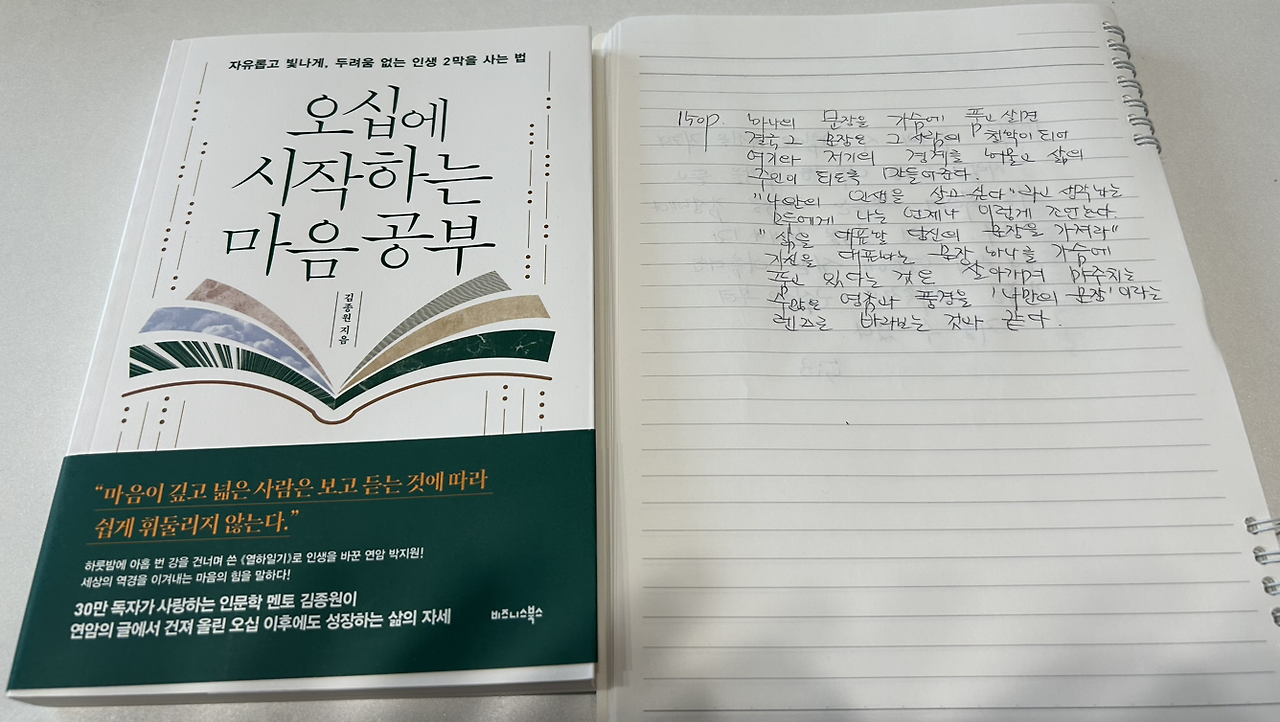 자유롭고 빛나게, 두려움 없는 인생 2막을 사는 법
오십에
시작하는
마음 공부
김종원 지음
“마음이 깊고 넓은 사람은 보고 듣는 것에 따라
쉽게 휘둘리지 않는다.”
하룻밤에 아홉 번 강을 건너며 쓴 《열하일기》로 인생을 바꾼 연암 박지원!
세상의 역경을 이겨내는 마음의 힘을 말하다!
30만 독자가 사랑하는 인문학 멘토 김종원이
연암의 글에서 건져 올린 오십 이후에도 성장하는 삶의 자세
비즈니스북스
150p. 하나의 문장을 가슴에 품고 살면
결국 그 문장은 그 사람의 철학이 되어
여기와 저기의 경계를 허물고 삶의
주인이 되도록 만들어간다.
"나만의 인생을 살고 싶다" 하고 생각하는
모두에게 나는 언제나 이렇게 조언한다.
"삶을 대표할 당신의 문장을 가져라"
자신을 대표하는 문장 하나를 가슴에
품고 있다는 것은 살아가며 마주치는
수많은 역경과 풍경을 '나만의 문장'이라는
렌즈로 바라보는 것과 같다.